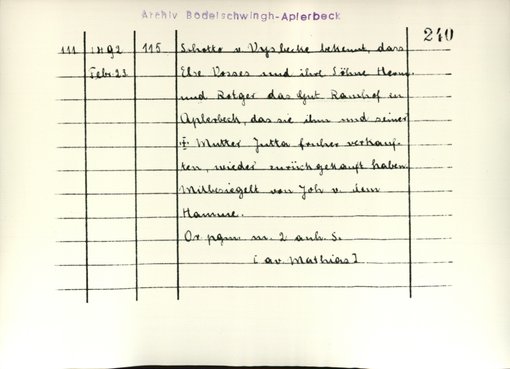 Archiv Bodelschwingh-Aplerbeck
240
111 1492 115 Schotte v. Vysbecke bekennt, dass
Febr. 23 Else Vosses und ihre Söhne Herm.
und Rotger das Gut Ramhof in
Aplerbeck, das sie ihm und seiner
† Mutter Jutta früher verkauf-
ten, wieder zurückgekauft haben.
Mitbesiegelt von Joh v. dem
Hamme.
Or. pgm. m. 2 anh. S.
[av. Mathias]